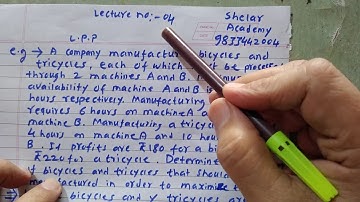 Lecture no:-04
Shelar
Academy
9833442004
L.P.P
e.g → A company manufactur bicycles and
tricycles, each of which st be processed
through 2 machines A and B.
availability of machine A and B is
hours respectively. Manufacturing
requires 6 hours on machine A a
machine B. Manufacturing a tricycl
4 hours on machine A and 10 hour
B. If profits are ₹180 for a bi
₹220 for a tricycle. Determine
of bicycles and tricycles that should
manufactured in order to maximize
bicycles and y tricycles are